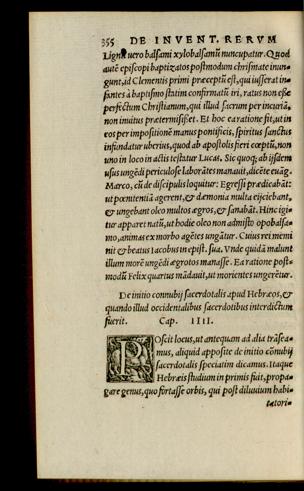 355 DE INVENT. RERVM
Ligni uero balsami xylobalsamũ nuncupatur. Quod
autẽ episcopi baptizatos postmodum chrismate inun-
gunt, id Clementis primi præceptũ est, qui iusserat in
fantes à baptismo statim confirmatũ iri, ratus non esse
perfectum Christianum, qui illud sacrum per incuriã,
non inuitus prætermisisset. Et hoc ea ratione fit, ut in
eos per impositionẽ manus pontificis, spiritus sanctus
infundatur uberius, quod ab apostolis fieri cœptũ, non
uno in loco in actis testatur Lucas. Sic quoq; ab ijsdem
usus ungẽdi periculose laborãtes manauit, dicẽte euãg.
Marco, cũ de discipulis loquitur: Egressi prædicabãt:
ut pœnitentiã agerent, & dæmonia multa eijciebant,
& ungebant oleo multos ægros, & sanabãt. Hinc igi-
tur apparet natũ, ut hodie oleo non admisto opobalsa-
mo, animas ex morbo agẽtes ungãtur. Cuius rei memi
nit & beatus Iacobus in epist. sua. Vnde quidã malunt
illum morẽ ungẽdi ægrotos manasse. Ea ratione post-
modũ Felix quartus mãdauit, ut morientes ungerẽtur.
De initio connubij sacerdotalis apud Hebræos, &
quando illud occidentalibus sacerdotibus interdictum
fuerit. Cap. IIII.
POscit locus, ut antequam ad alia trãsea-
mus, aliquid apposite de initio cõnubij
sacerdotalis speciatim dicamus. Itaque
Hebræis studium in primis fuit, propa-
gare genus, quo fortasse orbis, qui post diluuium habi-
tatori-